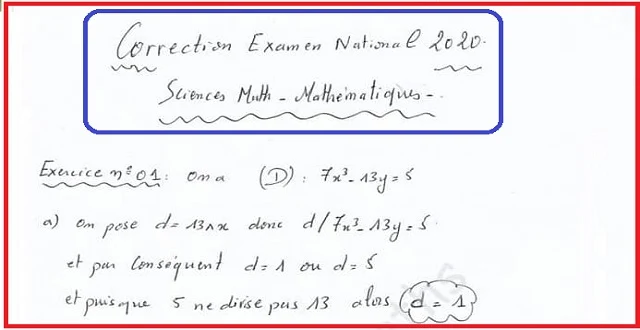 Correction Examen National 2020.
Sciences Math - Mathématiques -
Exercice n°01: On a (D): 7x³-13y=5
a) On pose d=13∧x donc d/7x³-13y=5.
et par conséquent d=1 ou d=5
et puisque 5 ne divise pas 13 alors d=1